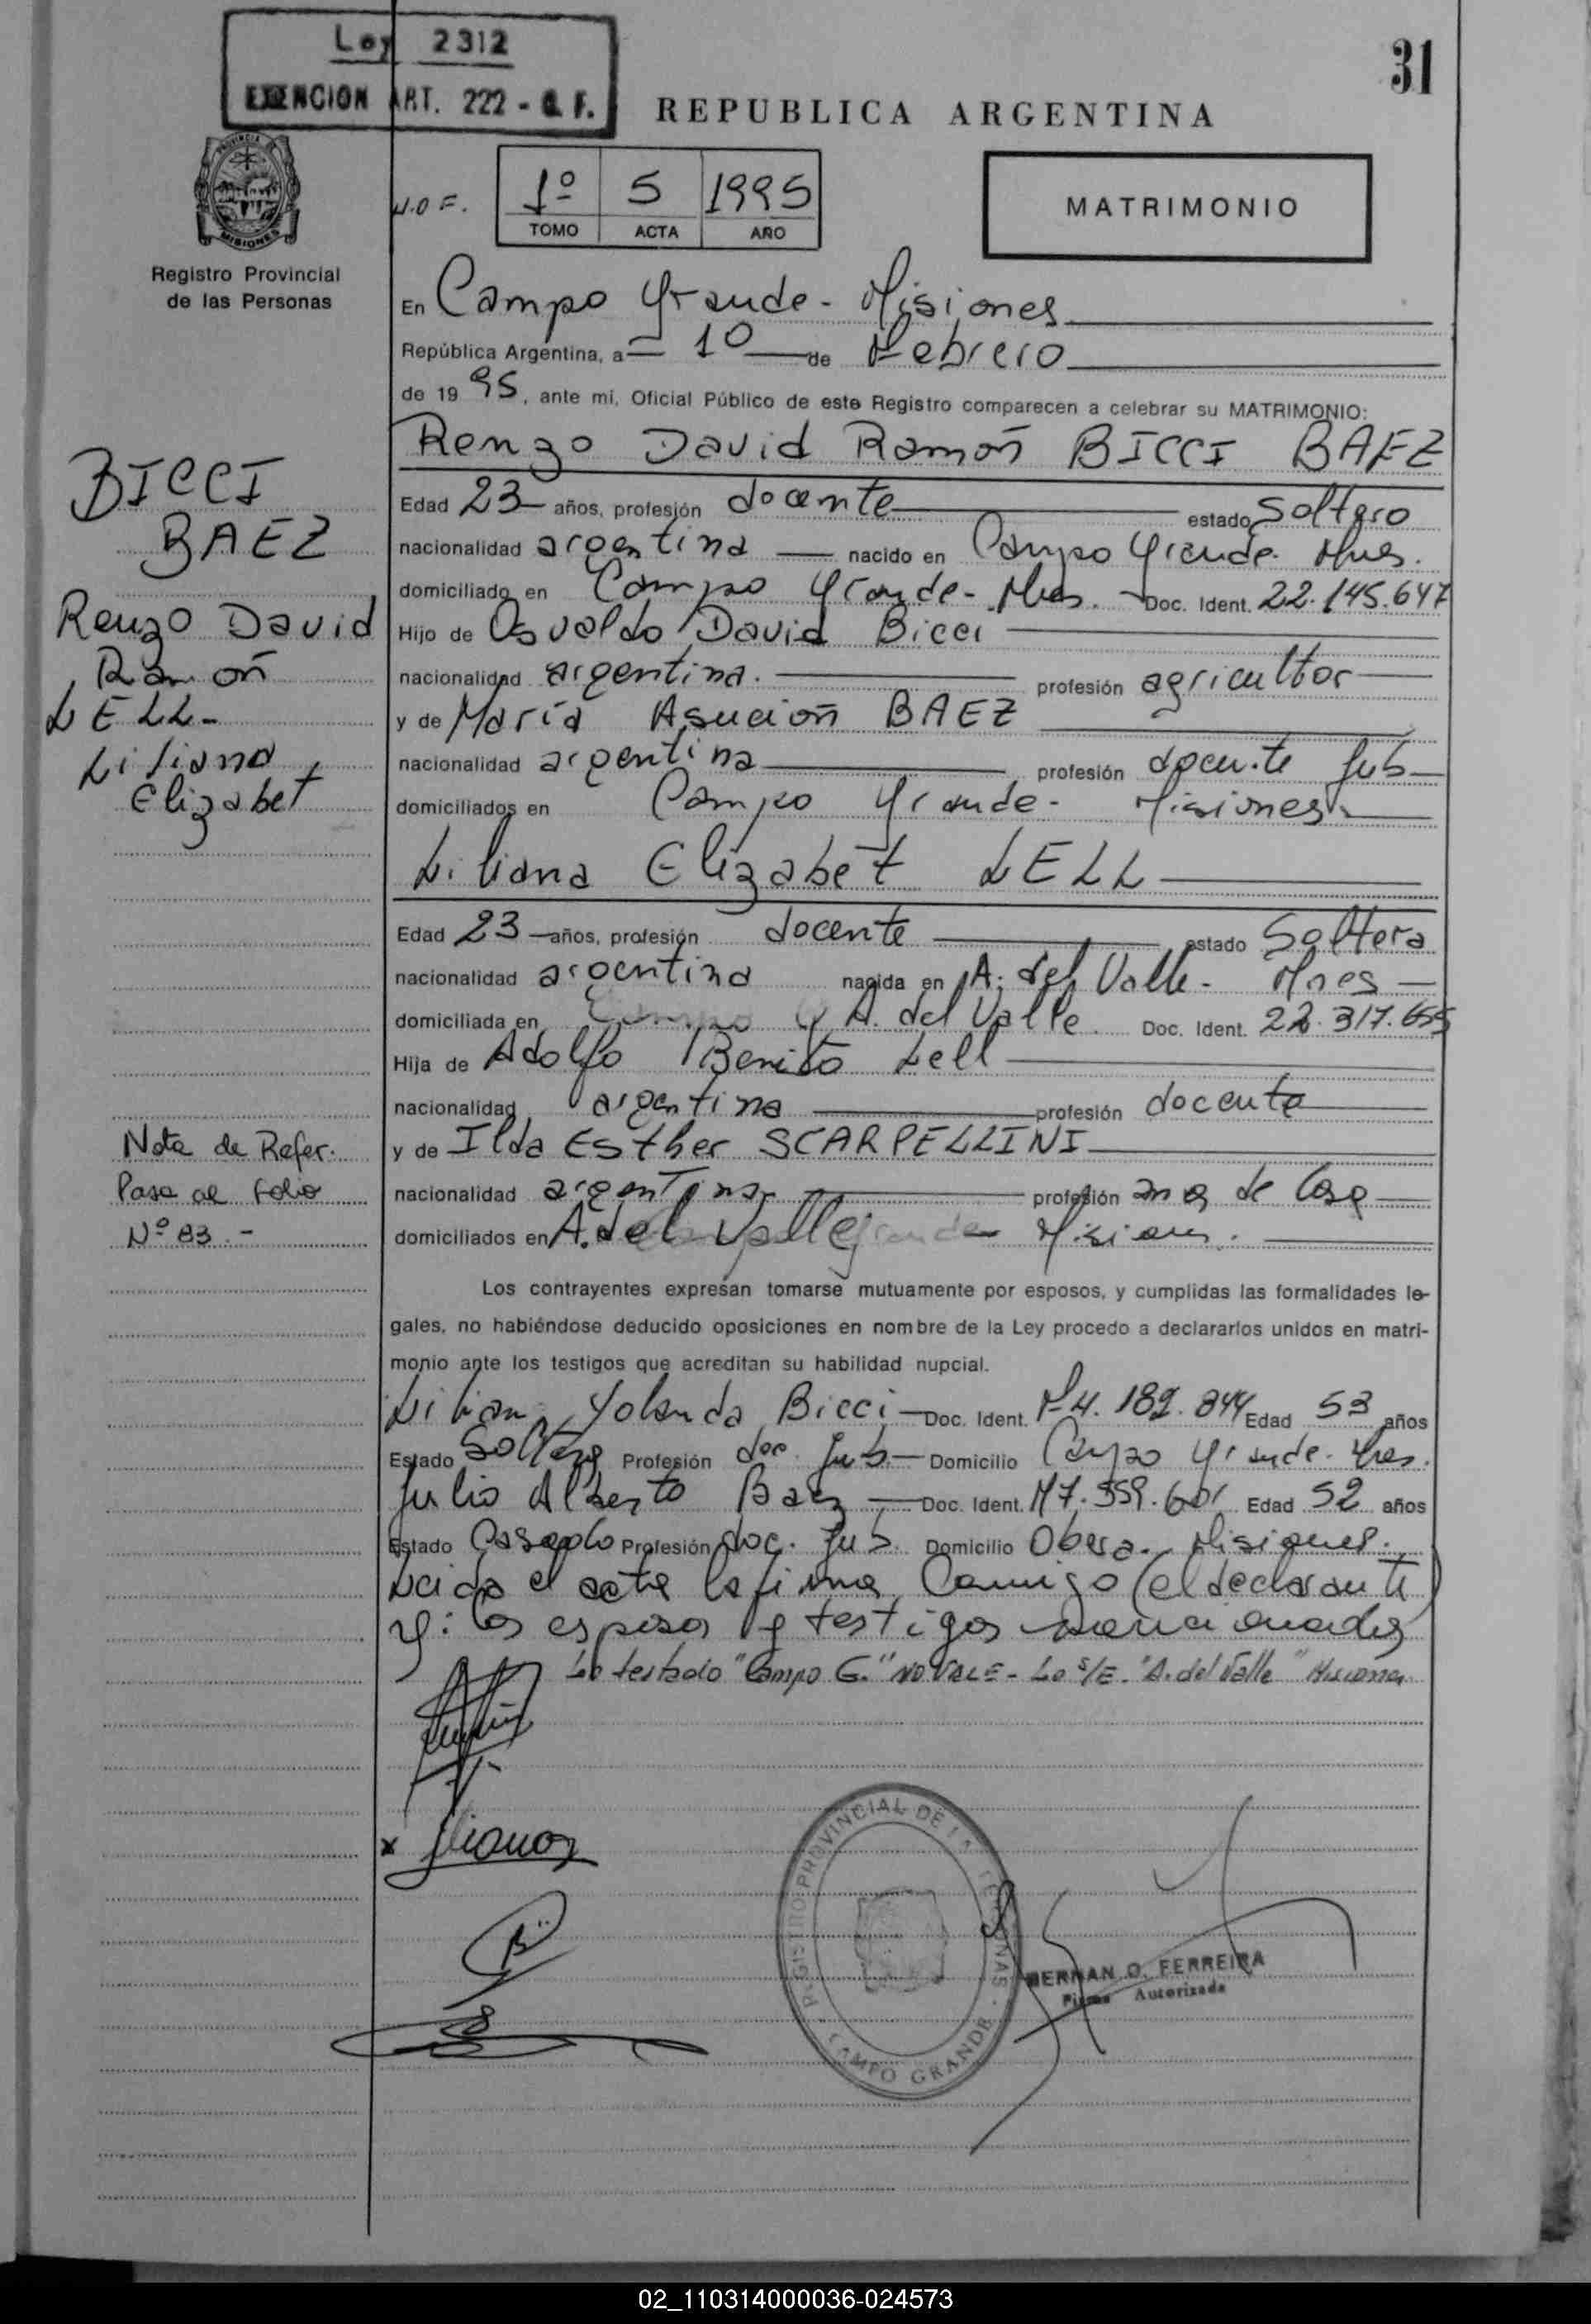 Ley 2312
EXENCION ART. 222 - C. F.
31
REPUBLICA ARGENTINA
PROVINCIA DE MISIONES
Registro Provincial
de las Personas
1º 5 1995
TOMO ACTA AÑO
MATRIMONIO
En Campo Grande - Misiones
República Argentina, a 10 de Febrero
de 1995, ante mí, Oficial Público de este Registro comparecen a celebrar su MATRIMONIO:
Renzo David Ramón BICCI BAEZ
Edad 23 años, profesión docente estado Soltero
nacionalidad argentina nacido en Campo Grande. Mnes.
domiciliado en Campo Grande - Mnes. Doc. Ident. 22.145.647
Hijo de Osvaldo David Bicci
nacionalidad argentina. profesión agricultor
y de María Asución BAEZ
nacionalidad argentina profesión docente Jub
domiciliados en Campo Grande - Misiones
Liliana Elizabet LELL
Edad 23 años, profesión docente estado Soltera
nacionalidad argentina nacida en A. del Valle - Mnes
domiciliada en A. del Valle Doc. Ident. 22.317.655
Hija de Adolfo Benito Lell
nacionalidad argentina profesión docente
y de Ilda Esther SCARPELLINI
nacionalidad argentina profesión ama de Casa
domiciliados en A. del Valle Misiones.
Los contrayentes expresan tomarse mutuamente por esposos, y cumplidas las formalidades le-
gales, no habiéndose deducido oposiciones en nombre de la Ley procedo a declararlos unidos en matri-
monio ante los testigos que acreditan su habilidad nupcial.
Lilian Yolanda Bicci Doc. Ident. F 4.189.844 Edad 53 años
Estado Soltera Profesión doc. Jub. Domicilio Campo Grande. Mnes.
Julio Alberto Baez Doc. Ident. M 7.559.601 Edad 52 años
Estado Casado Profesión doc. Jub. Domicilio Oberá. Misiones.
Leída el acta la firma Conmigo (el declarante)
y: los esposos y testigos mencionados
Lo testado "Campo G." NO VALE - Lo S/E. "A. del Valle" Misiones
BICCI
BAEZ
Renzo David
Ramón
LELL -
Liliana
Elizabet
Nota de Refer.
Pasa al Folio
Nº 83. -
REGISTRO PROVINCIAL DE LAS PERSONAS
CAMPO GRANDE
HERNAN O. FERREIRA
Firma Autorizada
02_110314000036-024573